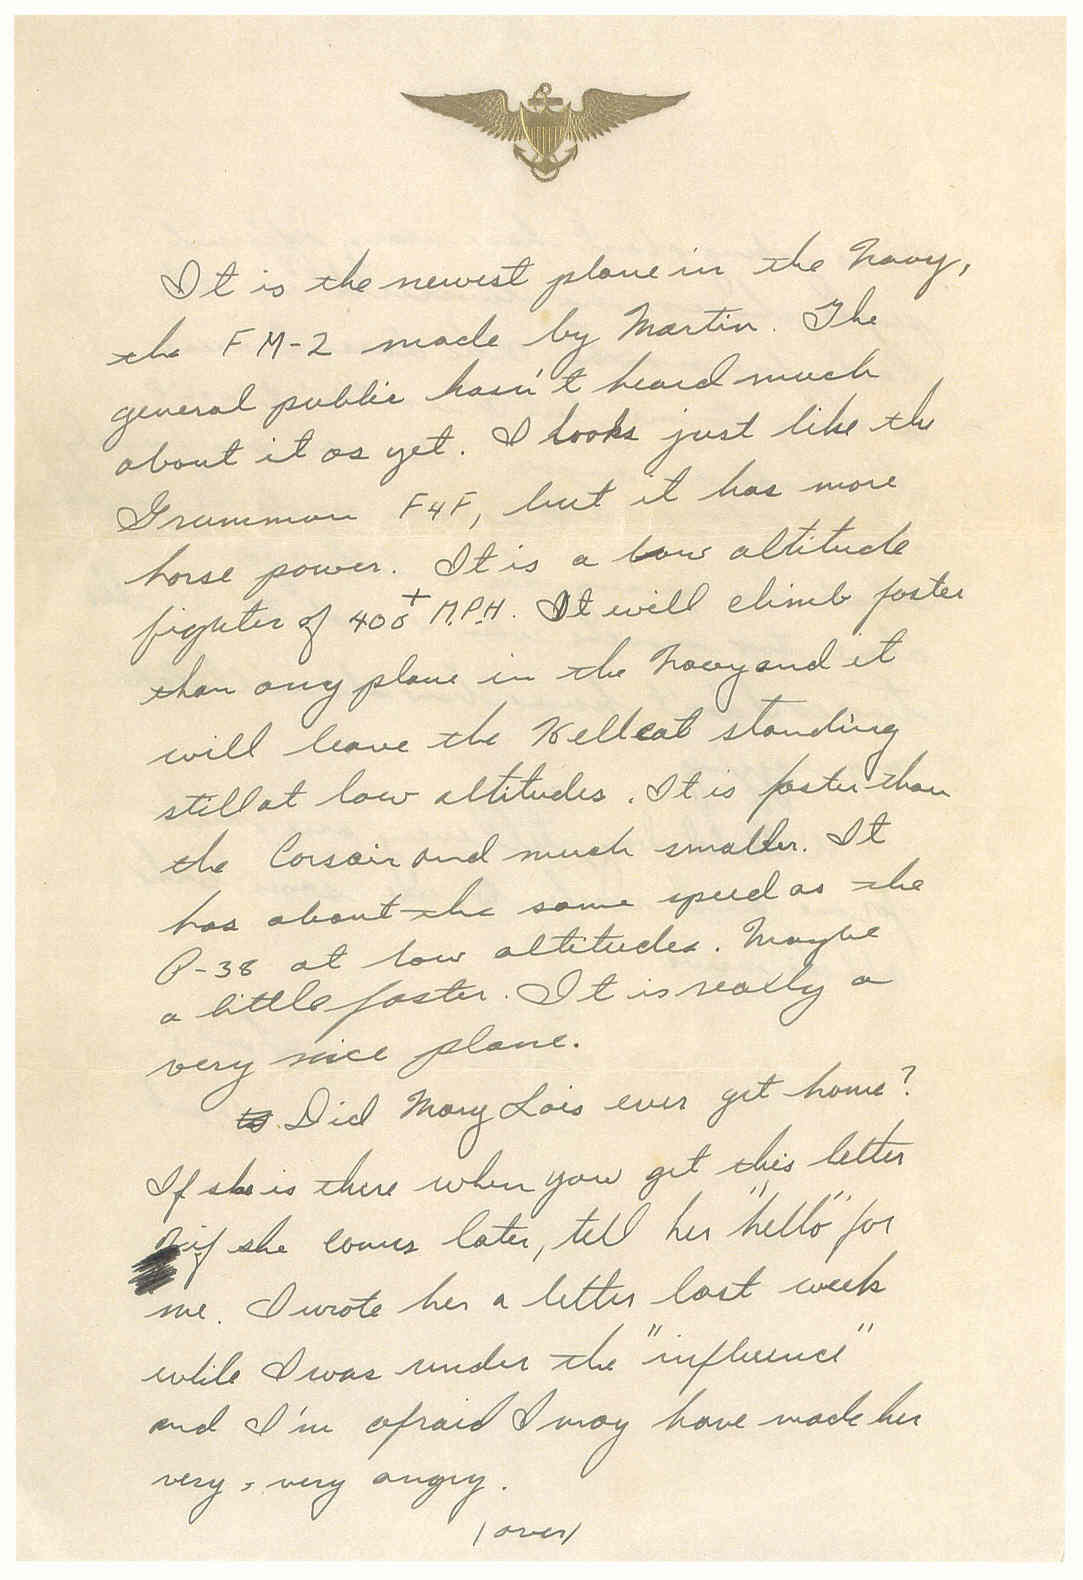 It is the newest plane in the Navy,
the FM-2 made by Martin. The
general public hasn't heard much
about it as yet. I looks just like the
Grumman F4F, but it has more
horse power. It is a low altitude
fighter of 400+ M.P.H. It will climb faster
than any plane in the Navy and it
will leave the Hellcat standing
still at low altitudes. It is faster than
the Corsair and much smaller. It
has about the same speed as the
P-38 at low altitudes. Maybe
a little faster. It is really a
very nice plane.
Did Mary Lois ever get home?
If she is there when you get this letter
if she comes later, tell her "hello" for
me. I wrote her a letter last week
while I was under the "influence"
and I'm afraid I may have made her
very, very angry.
(over)